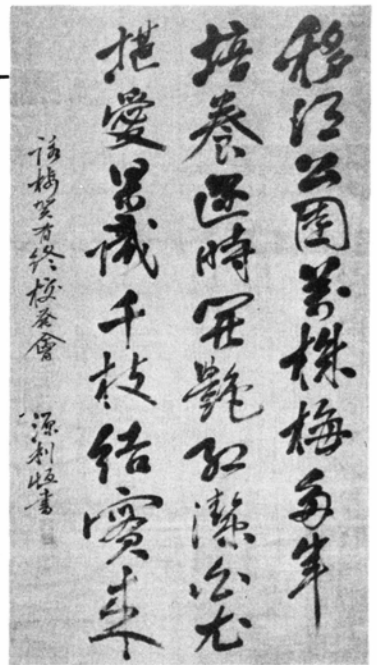 移江公園萬株梅多年
培養逐時開艷紅潔白尤
堪愛果識千枝結實来
詠梅賀有終校発會
源利恒書